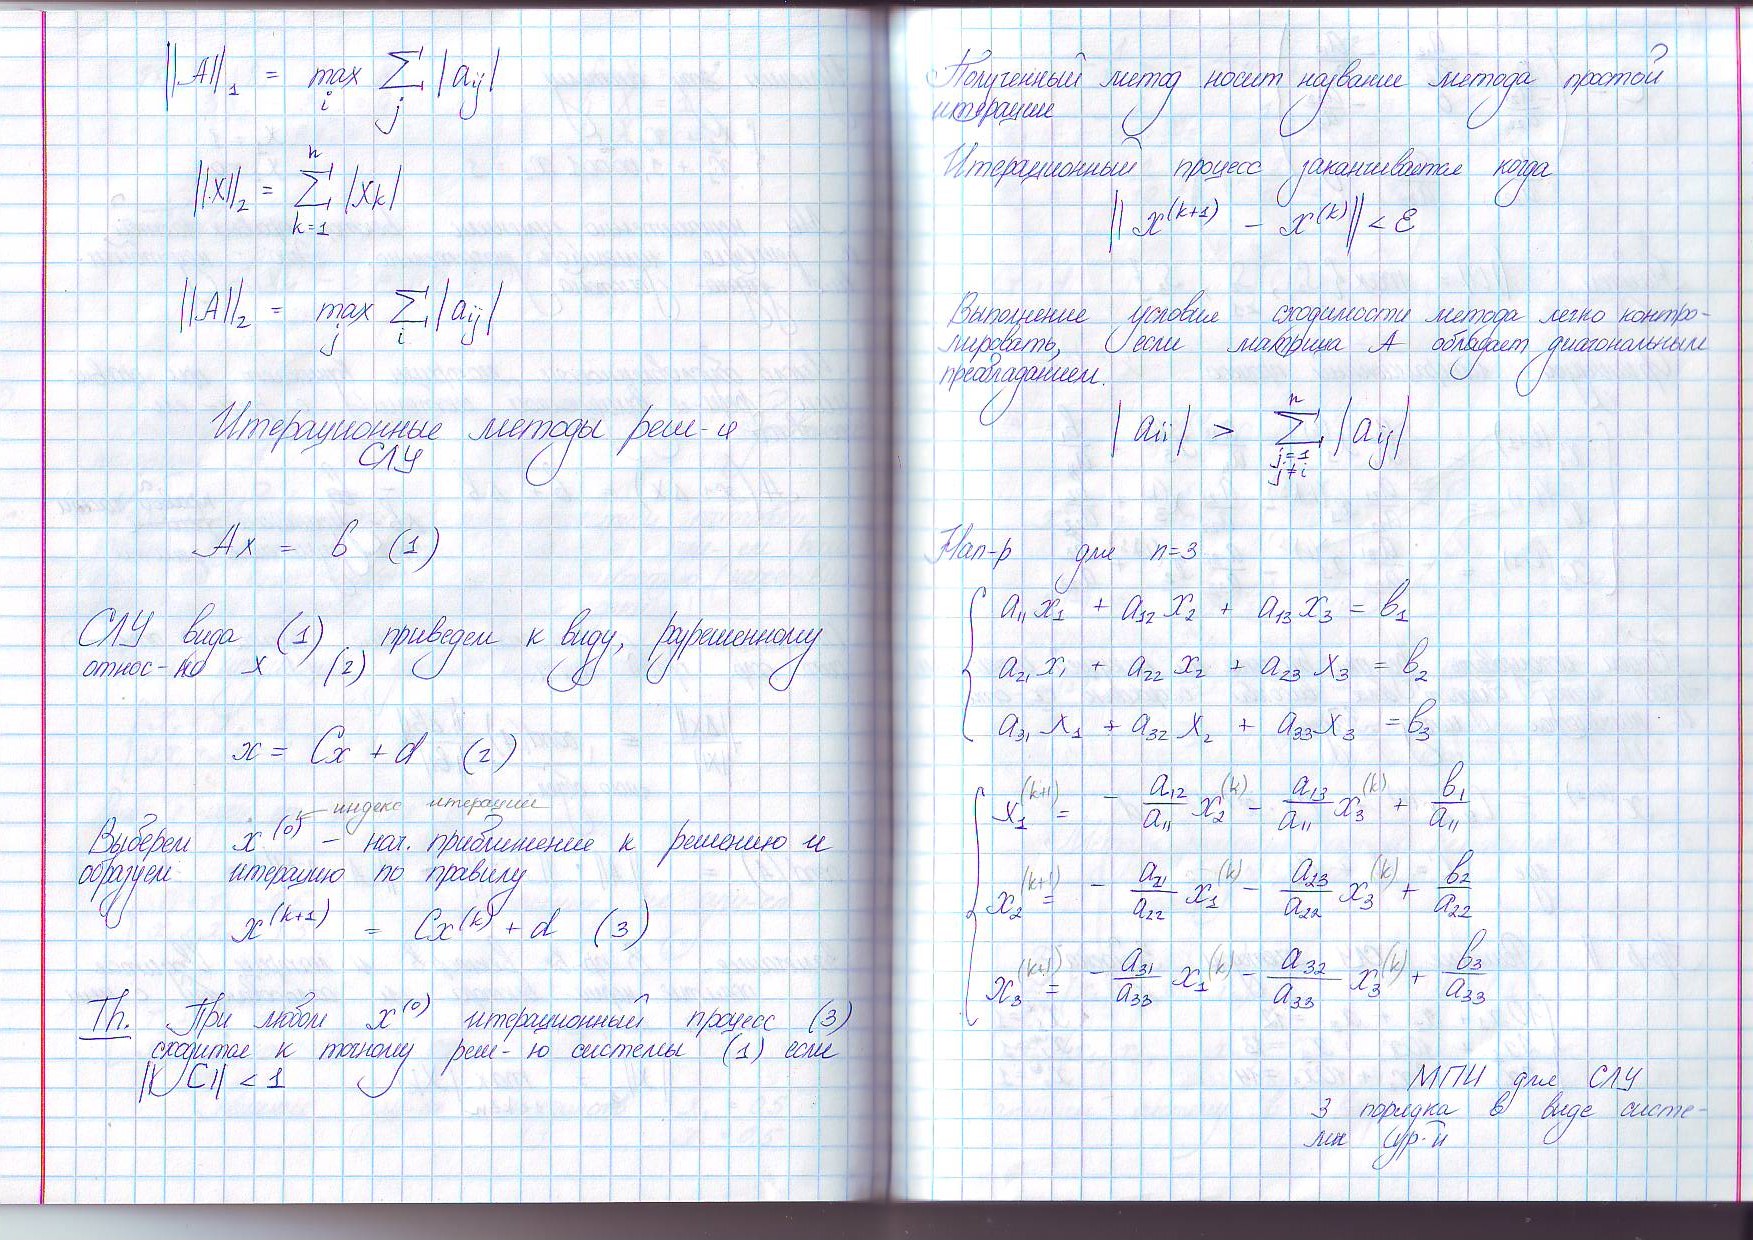 ||A||₁ = max_i ∑_j |aᵢⱼ|
||X||₂ = ∑_{k=1}^{n} |xₖ|
||A||₂ = max_j ∑_i |aᵢⱼ|
Итерационные методы реш-я
СЛУ
Ax = b (1)
СЛУ вида (1) приведем к виду, разрешенному
относ-но x (2)
x = Cx + d (2)
← индекс итерации
Выберем x⁽⁰⁾ – нач. приближение к решению и
образуем итерацию по правилу
x⁽ᵏ⁺¹⁾ = Cx⁽ᵏ⁾ + d (3)
Th. При любом x⁽⁰⁾ итерационный процесс (3)
сходится к точному реш-ю системы (1) если
||C|| < 1
Полученный метод носит название метода простой
итерации
Итерационный процесс заканчивается когда
||x⁽ᵏ⁺¹⁾ – x⁽ᵏ⁾|| < ε
Выполнение условия сходимости метода легко контро-
лировать, если матрица A обладает диагональным
преобладанием.
|aᵢᵢ| > ∑_{j=1, j≠i}^{n} |aᵢⱼ|
Нап-р для n=3
a₁₁x₁ + a₁₂x₂ + a₁₃x₃ = b₁
a₂₁x₁ + a₂₂x₂ + a₂₃x₃ = b₂
a₃₁x₁ + a₃₂x₂ + a₃₃x₃ = b₃
x₁⁽ᵏ⁺¹⁾ = – a₁₂/a₁₁ x₂⁽ᵏ⁾ – a₁₃/a₁₁ x₃⁽ᵏ⁾ + b₁/a₁₁
x₂⁽ᵏ⁺¹⁾ = – a₂₁/a₂₂ x₁⁽ᵏ⁾ – a₂₃/a₂₂ x₃⁽ᵏ⁾ + b₂/a₂₂
x₃⁽ᵏ⁺¹⁾ = – a₃₁/a₃₃ x₁⁽ᵏ⁾ – a₃₂/a₃₃ x₃⁽ᵏ⁾ + b₃/a₃₃
МПИ для СЛУ
3 порядка в виде систе-
мы ур-й